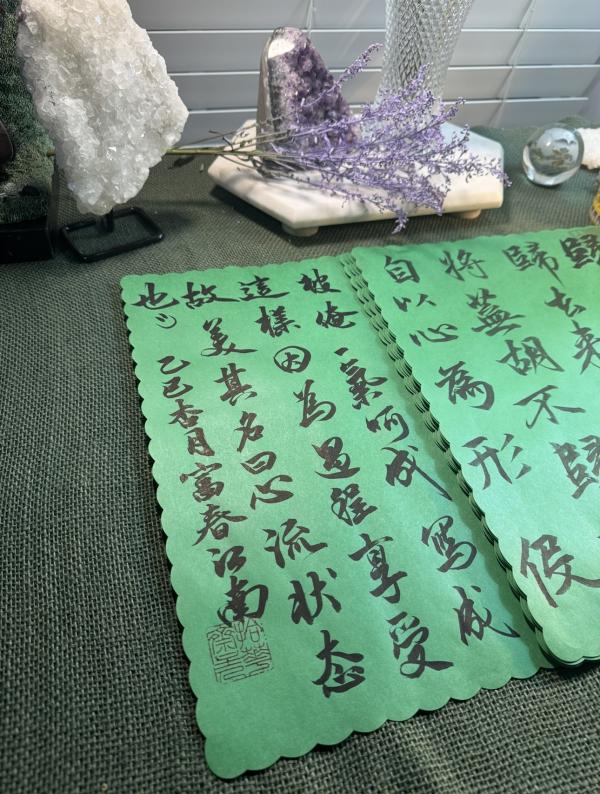 歸去来
將蕪胡不歸
自以心為形役
被俺一氣呵成寫成
這樣因為過程享受
故美其名曰心流状态
也
乙巳杏月富春江南